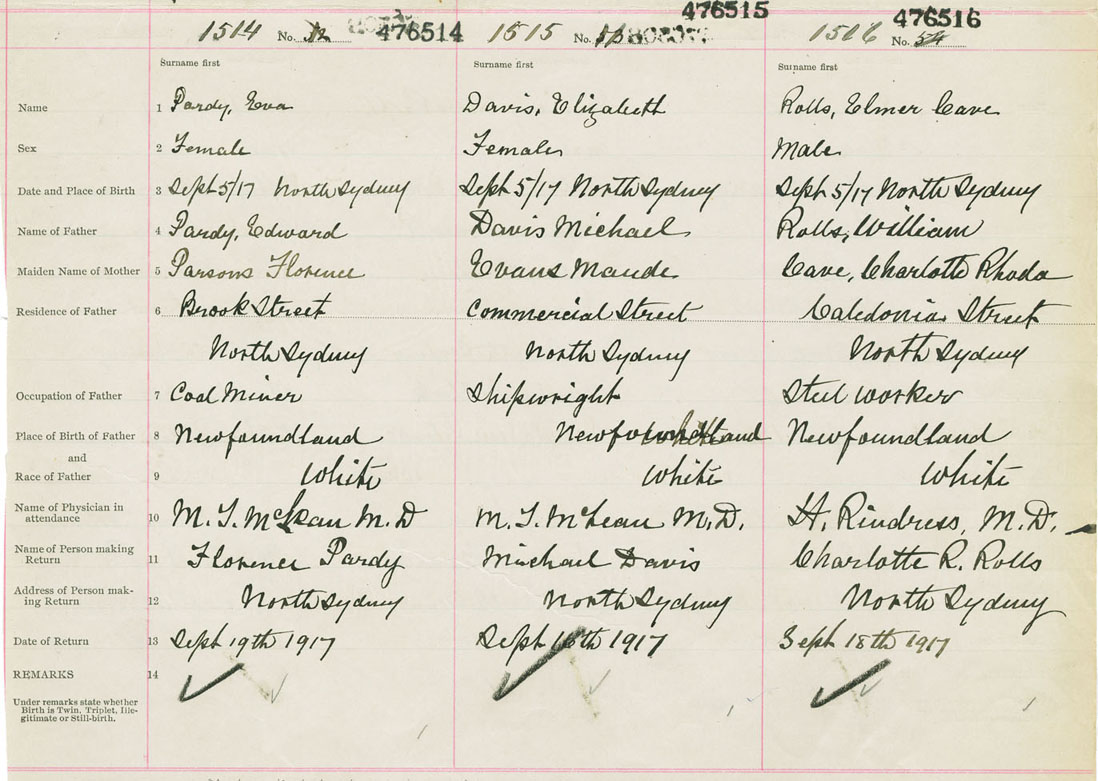 1514 No. 476514 1515 No. 476515 1516 No. 54 476516
Surname first Surname first Surname first
Name 1 Pardy, Eva Davis, Elizabeth Rolls, Elmer Cave
Sex 2 Female Female Male
Date and Place of Birth 3 Sept 5/17 North Sydney Sept 5/17 North Sydney Sept 5/17 North Sydney
Name of Father 4 Pardy, Edward Davis Michael Rolls, William
Maiden Name of Mother 5 Parsons Florence Evans Maude Cave, Charlotte Rhoda
Residence of Father 6 Brook Street Commercial Street Caledonia Street
North Sydney North Sydney North Sydney
Occupation of Father 7 Coal Miner Shipwright Steel worker
Place of Birth of Father 8 Newfoundland Newfoundland Newfoundland
and
Race of Father 9 White White White
Name of Physician in
attendance 10 M. T. McLean M. D M. T. McLean M. D. H. Rindress, M. D.
Name of Person making
Return 11 Florence Pardy Michael Davis Charlotte R. Rolls
Address of Person mak-
ing Return 12 North Sydney North Sydney North Sydney
Date of Return 13 Sept 19th 1917 Sept 18th 1917 Sept 18th 1917
REMARKS 14
Under remarks state whether
Birth is Twin, Triplet, Ille-
gitimate or Still-birth.